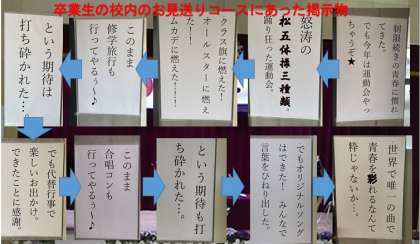 卒業生の校内のお見送りコースにあった掲示物
制限続きの青春に慣れ
てきた。
でも今年は運動会やっ
ちゃうぞ★
怒涛の
三種類。
踊り狂った運動会。
クラス旗に燃えた!
オールスターに燃え
た!!
ムカデに燃えた!!!
このまま
修学旅行も
行ってやるぅ～♪
という期待は
打ち砕かれた…。
でも代替行事で
楽しいお出かけ。
できたことに感謝。
このまま
合唱コンも
行ってやるぅ～♪
という期待も打
ち砕かれた…。
でもオリジナルソング
はできた! みんなで
言葉をひねり出した。
世界で唯一の曲で
青春を彩れるなんて
粋じゃないか…。